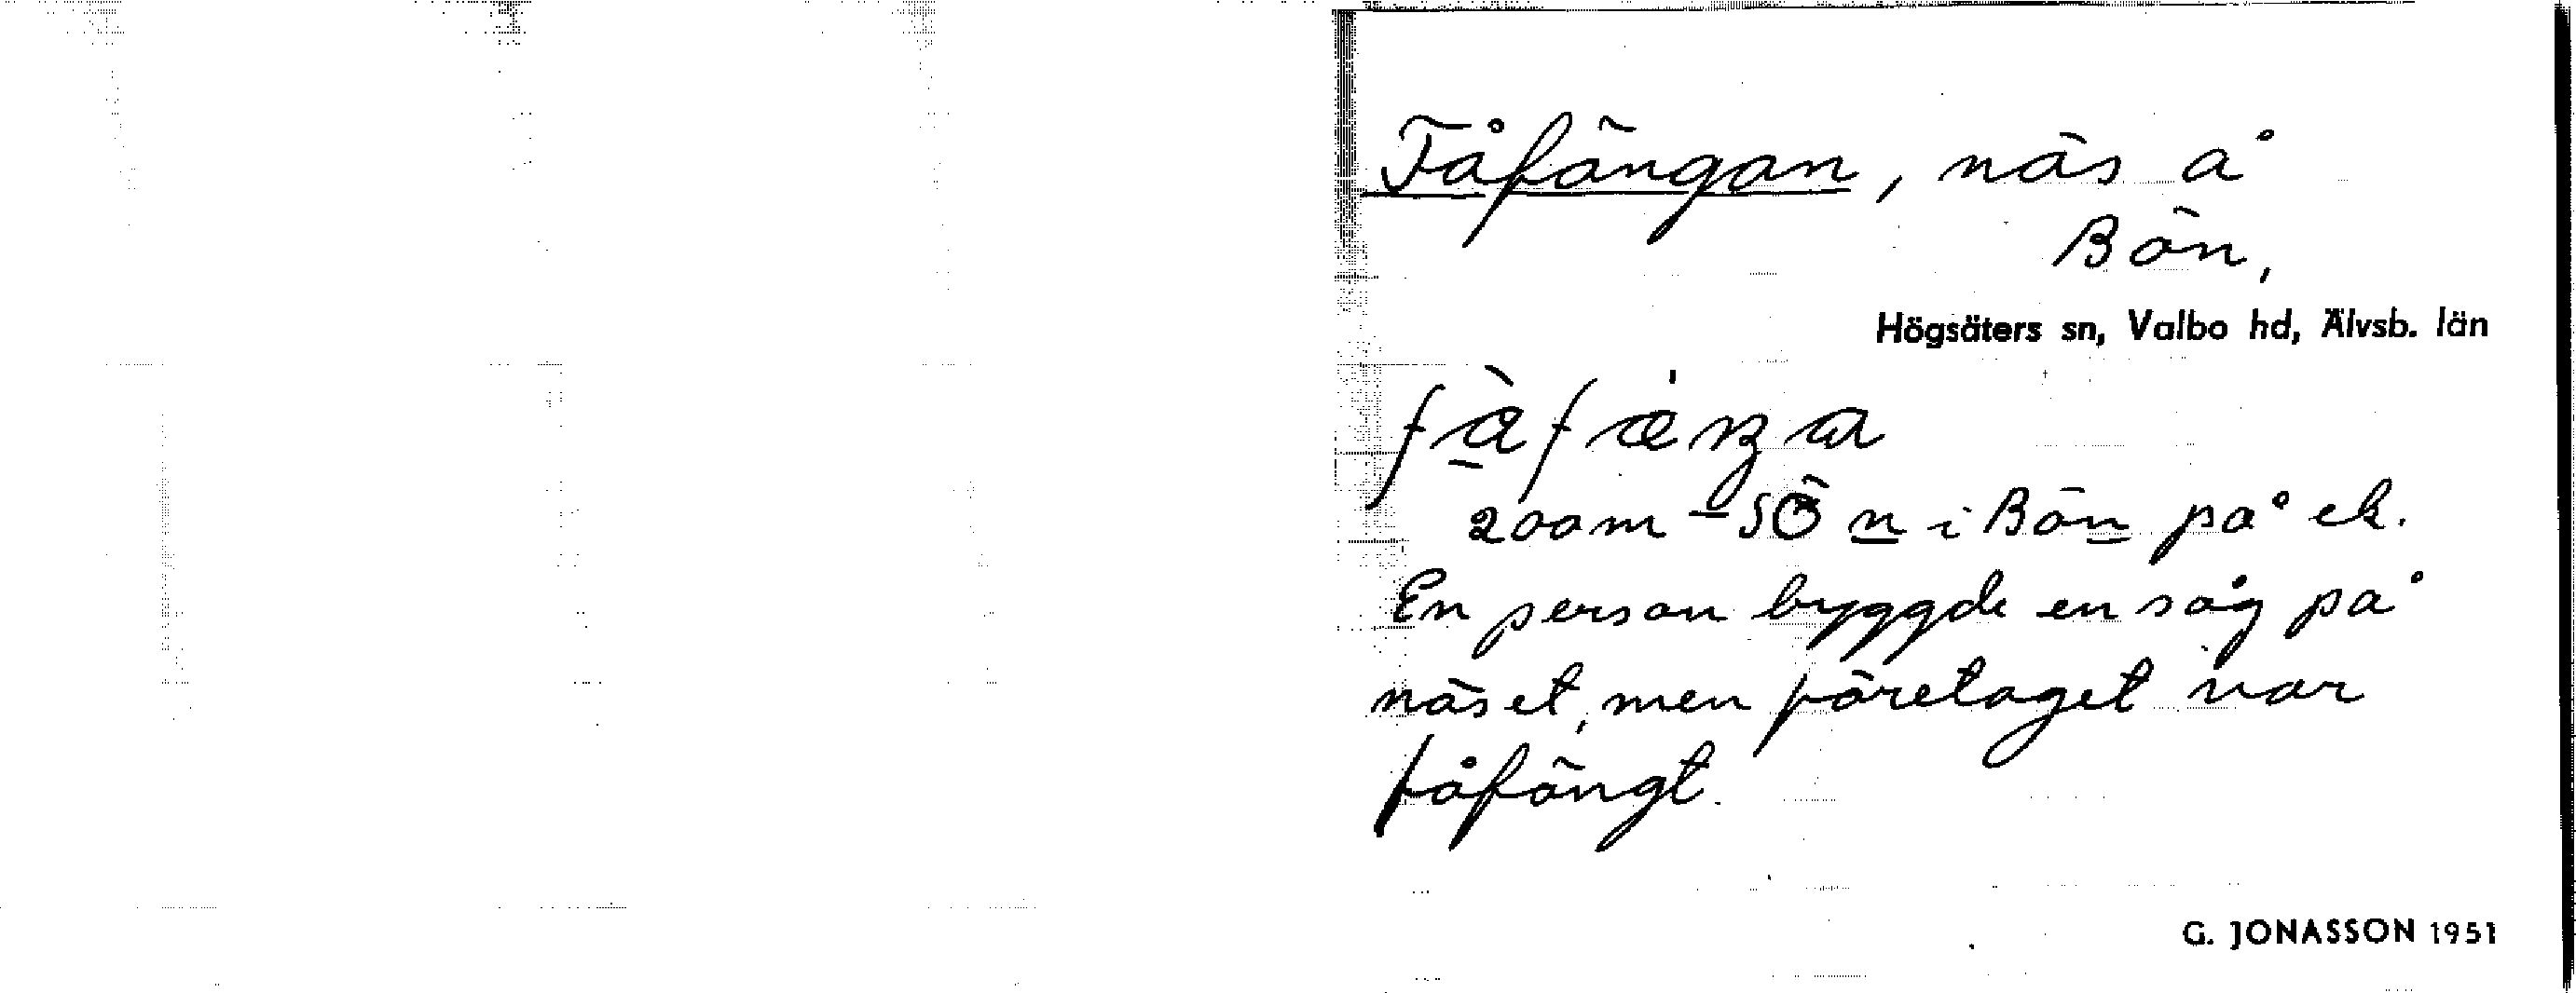 Fåfängan, näs å
Bön,
Högsäters sn, Valbo hd, Älvsb. län
200 m SÖ n i Bön på ek.
En person byggde en såg på
näset, men företaget var
fåfängt.
G. JONASSON 1951